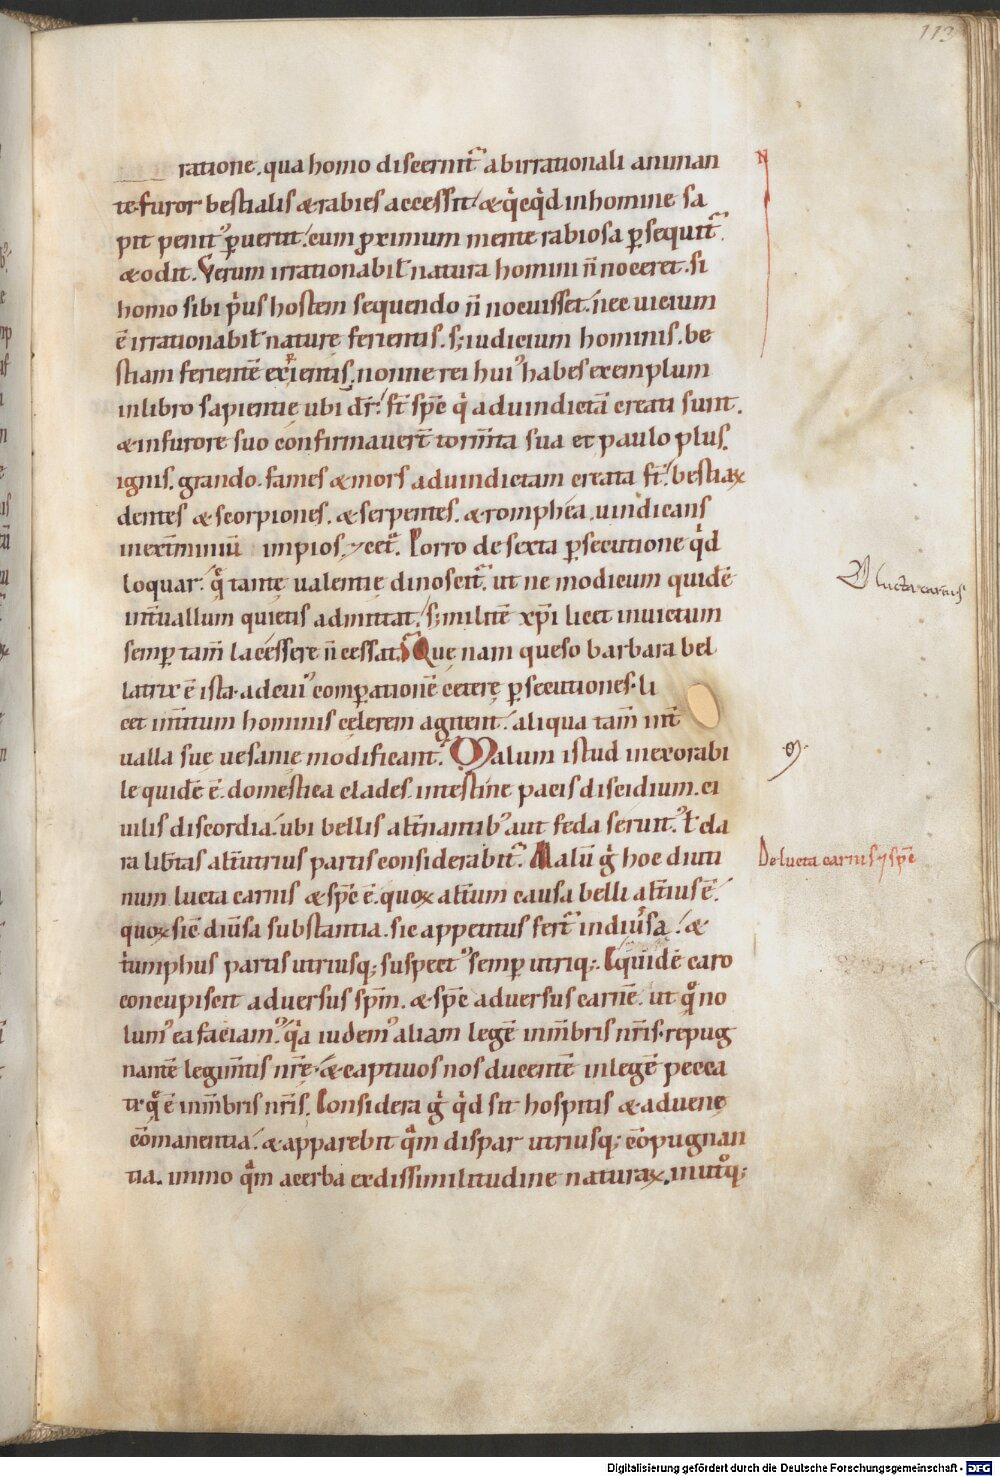 113
ratione. qua homo discernit᷑ ab irrationali animan
te. furor bestialis & rabies accessit / & q̇cq̇d in homine sa
pit penit᾽ ꝑuertit / cum ꝓximum mente rabiosa ꝑsequit᷑
& odit. Verum irrationabil̓ natura homini n̄ noceret. si
homo sibi p̓us hostem sequendo n̄ nocuisset. nec uicium
ē irrationabil̓ nature ferientis. s; iudicium hominis. be
stiam ferientē exꝑientis. nonne rei hui᾽ habes exemplum
in libro sapientie ubi dr̄: / st̄ sp̄c q̇ ad uindictā creati sunt.
& in furore suo confirmauer̄t torm̄ta sua et paulo plus.
ignis. grando. fames & mors ad uindictam creata st̄. / bestiaꝝ
dentes & scorpiones. & serpentes. & romphea. uindicans
in ext̄miniū impios. ⁊ cet̄. Porro de sexta ꝑsecutione q̇d
loquar. / q̄ tantę ualentię dinoscit᷑. ut ne modicum quidē
int̄uallum quietis admittat. / s; militē xp̄i licet inuictum
semꝑ tam̄ lacessere n̄ cessat. Quę nam queso barbara bel
latrix ē ista. ad cui᾽ comꝑationē cetere ꝑsecutiones. li
cet int̄itum hominis celerem agitent. / aliqua tam̄ int̄
ualla suę uesanię modificant᷑. Malum istud inexorabi
le quidē ē. domestica clades. intestinę pacis discidium. ci
uilis discordia. / ubi bellis alt̄nantib᾽ aut feda seruit᾽. ł cla
ra lib̄tas alt̄utrius partis considerabit᷑. Malū g̓ hoc diuti
num lucta carnis & sp̄c ē. quoꝝ alt̄ium causa belli alt̄ius ē /
quoꝝ sic̄ diūsa substantia. sic appetitus fert᷑ in diūsa. / &
t̓umphus partis utriusq; suspect᾽ semꝑ utriq;. Siquidē caro
concupiscit aduersus sp̄m. & sp̄c aduersus carnē. ut q̄ no
lum᾽ ea faciam᾽. / q̓a uidem᾽ aliam legē in m̄bris nr̄is. repug
nantē legi m̄tis nr̄ę. / & captiuos nos ducentē in legē pecca
ti. q̄ ē in m̄bris nr̄is. Considera g̓ q̇d sit hospitis & aduenę
cōmanentia. / & apparebit q̄m dispar utriusq; cōpugnan
tia. immo q̄m acerba ex dissimilitudine naturaꝝ. in ut̊q;
N
lucta carnis
De lucta carnis ⁊ sp̄c
Digitalisierung gefördert durch die Deutsche Forschungsgemeinschaft - DFG